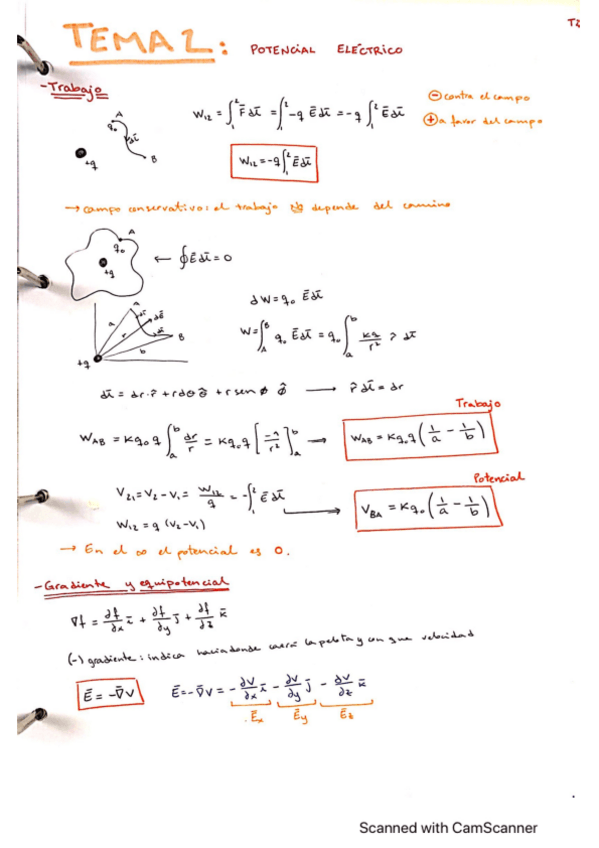 TEMA 2: POTENCIAL ELÉCTRICO
T2
- Trabajo
W₁₂ = ∫₁² F̄ dl̄ = ∫₁² -q Ē dl̄ = -q ∫₁² Ē dl̄
⊖ contra el campo
⊕ a favor del campo
A
q₀
dl̄
B
+q
W₁₂ = -q ∫₁² Ē dl̄
→ campo conservativo: el trabajo depende del camino
A
q₀
+q
← ∮ Ē dl̄ = 0
dW = q₀ Ē dl̄
A
a
r
b
B
+q
W = ∫_A^B q₀ Ē dl̄ = q₀ ∫_a^b kq/r² r̂ dl̄
dl̄ = dr·r̂ + rdθ θ̂ + r sen ϕ ϕ̂ → r̂ dl̄ = dr
Trabajo
W_AB = K q₀ q ∫_a^b dr/r = K q₀ q [-1/r²]_a^b → W_AB = K q₀ q (1/a - 1/b)
Potencial
V₂₁ = V₂ - V₁ = W₁₂/q = -∫₁² Ē dl̄ → V_BA = K q₀ (1/a - 1/b)
W₁₂ = q (V₂ - V₁)
→ En el ∞ el potencial es 0.
- Gradiente y equipotencial
∇f = ∂f/∂x ī + ∂f/∂y j̄ + ∂f/∂z k̄
(-) gradiente: indica hacia donde caerá la pelota y con que velocidad
Ē = -∇̄V
Ē = -∇̄V = -∂V/∂x ī - ∂V/∂y j̄ - ∂V/∂z k̄
Ēx Ēy Ēz
Scanned with CamScanner